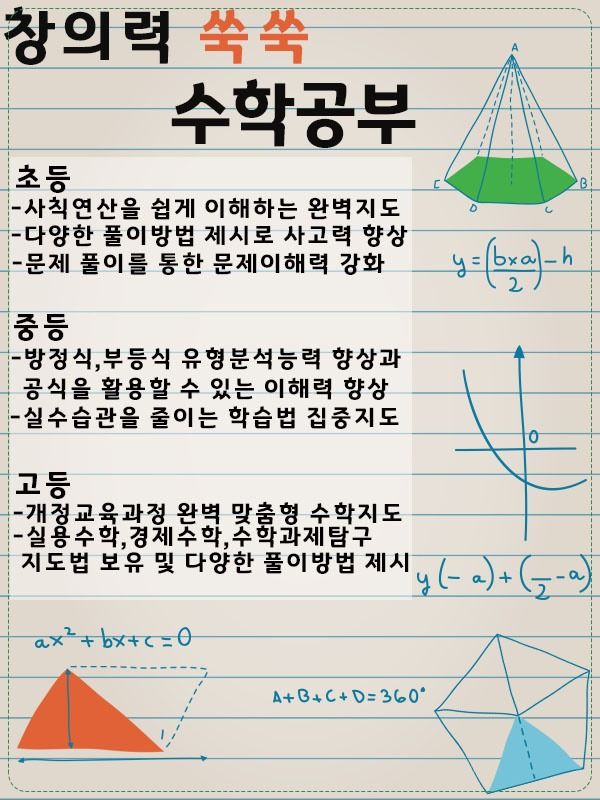 창의력 쑥쑥
수학공부
초등
-사칙연산을 쉽게 이해하는 완벽지도
-다양한 풀이방법 제시로 사고력 향상
-문제 풀이를 통한 문제이해력 강화
중등
-방정식,부등식 유형분석능력 향상과
공식을 활용할 수 있는 이해력 향상
-실수습관을 줄이는 학습법 집중지도
고등
-개정교육과정 완벽 맞춤형 수학지도
-실용수학,경제수학,수학과제탐구
지도법 보유 및 다양한 풀이방법 제시
A
E
B
D
C
y=(bxa/2)-h
0
y(- a)+(—/2-a)
ax²+bx+c=0
A+B+C+D=360°